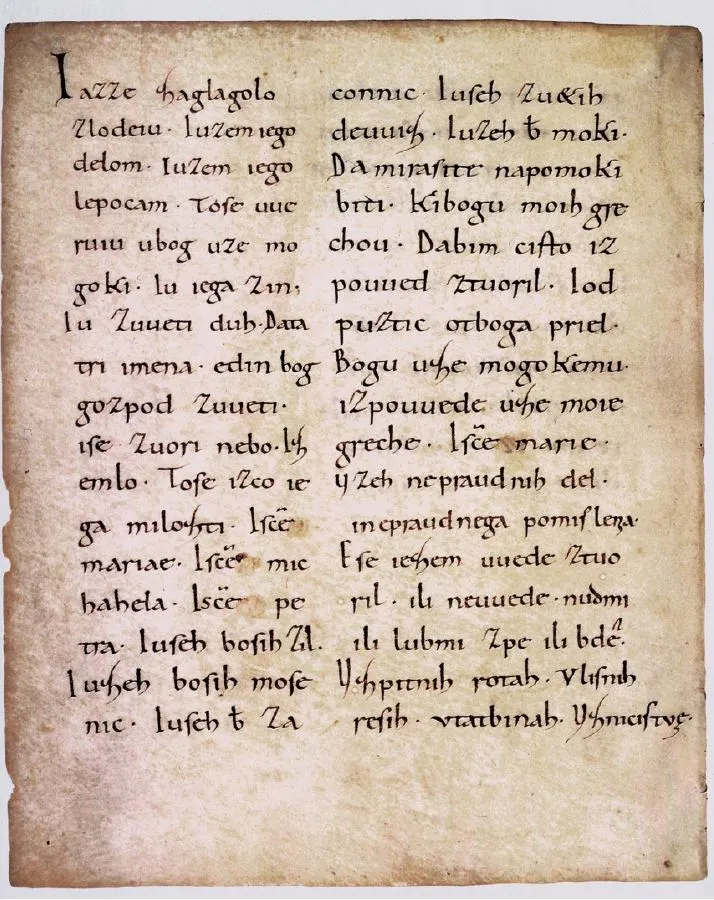 Iazze zaglagolo
zlodeiu. Iuzem iego
delom. Iuzem iego
lepocam. Tose uue
ruiu ubog uze mo
goki. Iu iega zin.
Iu zuueti duh. Data
tri imena. edin bog
gozpod zuueti.
ise zuori nebo. Iz
emlo. Tose izco ie
ga milozti. Iscē
mariae. Iscē mic
hahela. Iscē pe
tra. Iuseh bosih zil.
Iuzeh bosih mose
nic. Iuseh b̄ za
connic. Iuseh zu&ih
deuuiz. Iuzeh b̄ moki.
Da mirasite napomoki
biti. Kibogu moih gre
chou. Dabim cisto iz
pouued ztuoril. Iod
puztic otboga priel.
Bogu uze mogokemu.
izpouuede uze moie
greche. Iscē marie.
Uzeh nepraudnih del.
inepraudnega pomislenza.
Ese iezem uuede ztuo
ril. ili neuuede. nudmi
ili lubmi zpe ili bdē.
Uzpitnih rotah. Vlisnih
resih. vtatbinah. Uznicistve.